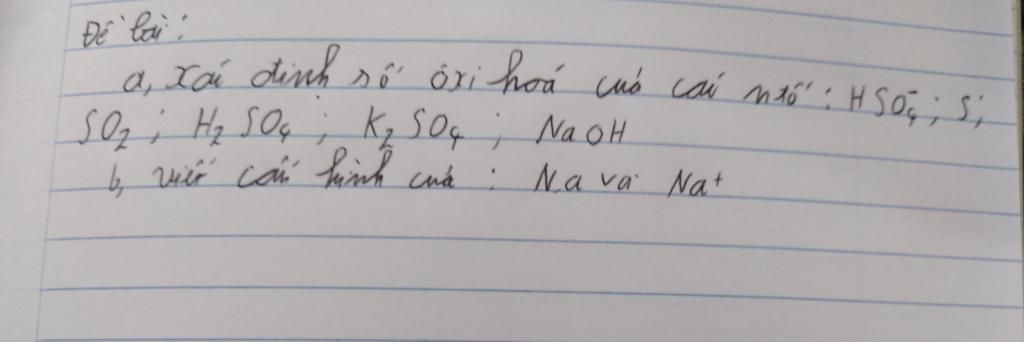 Đề bài:
a, xác định số ôxi hoá của các ntố: HSO₄⁻; S;
SO₂; H₂SO₄; K₂SO₄; NaOH
b, viết cấu hình của: Na và Na⁺